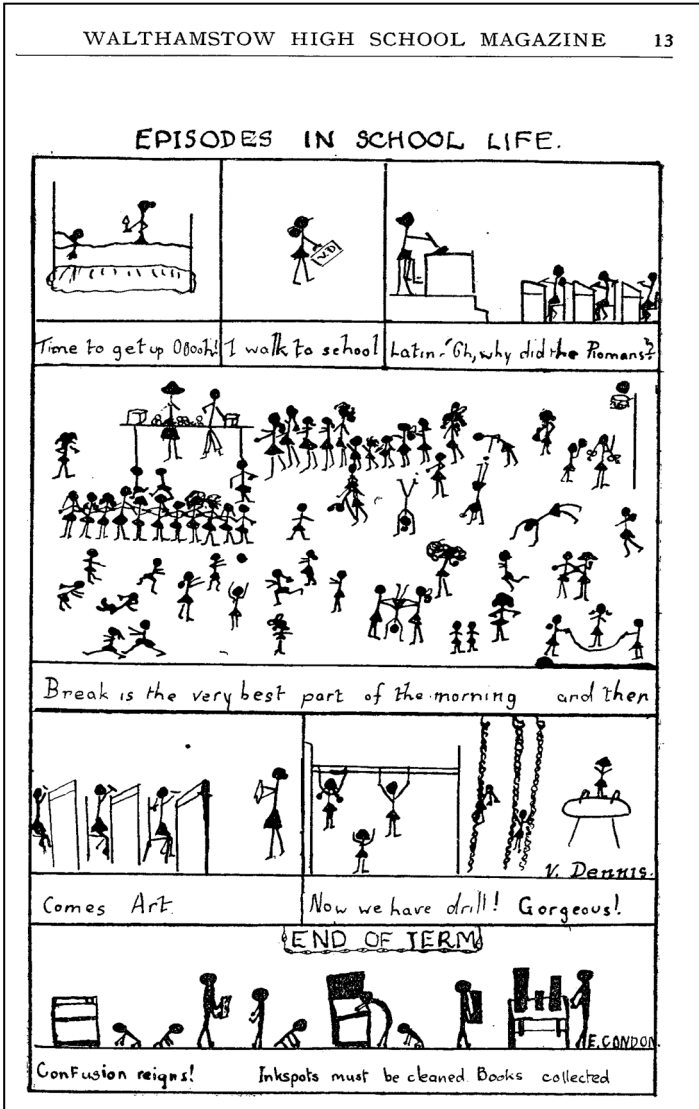 WALTHAMSTOW HIGH SCHOOL MAGAZINE 13
EPISODES IN SCHOOL LIFE.
V.D
Time to get up Ooooh!
I walk to school
Latin-"Oh, why did the Romans"?
Break is the very best part of the morning and then
V. Dennis.
Comes Art.
Now we have drill! Gorgeous!
END OF TERM
E.CONDON.
Confusion reigns! Inkspots must be cleaned. Books collected